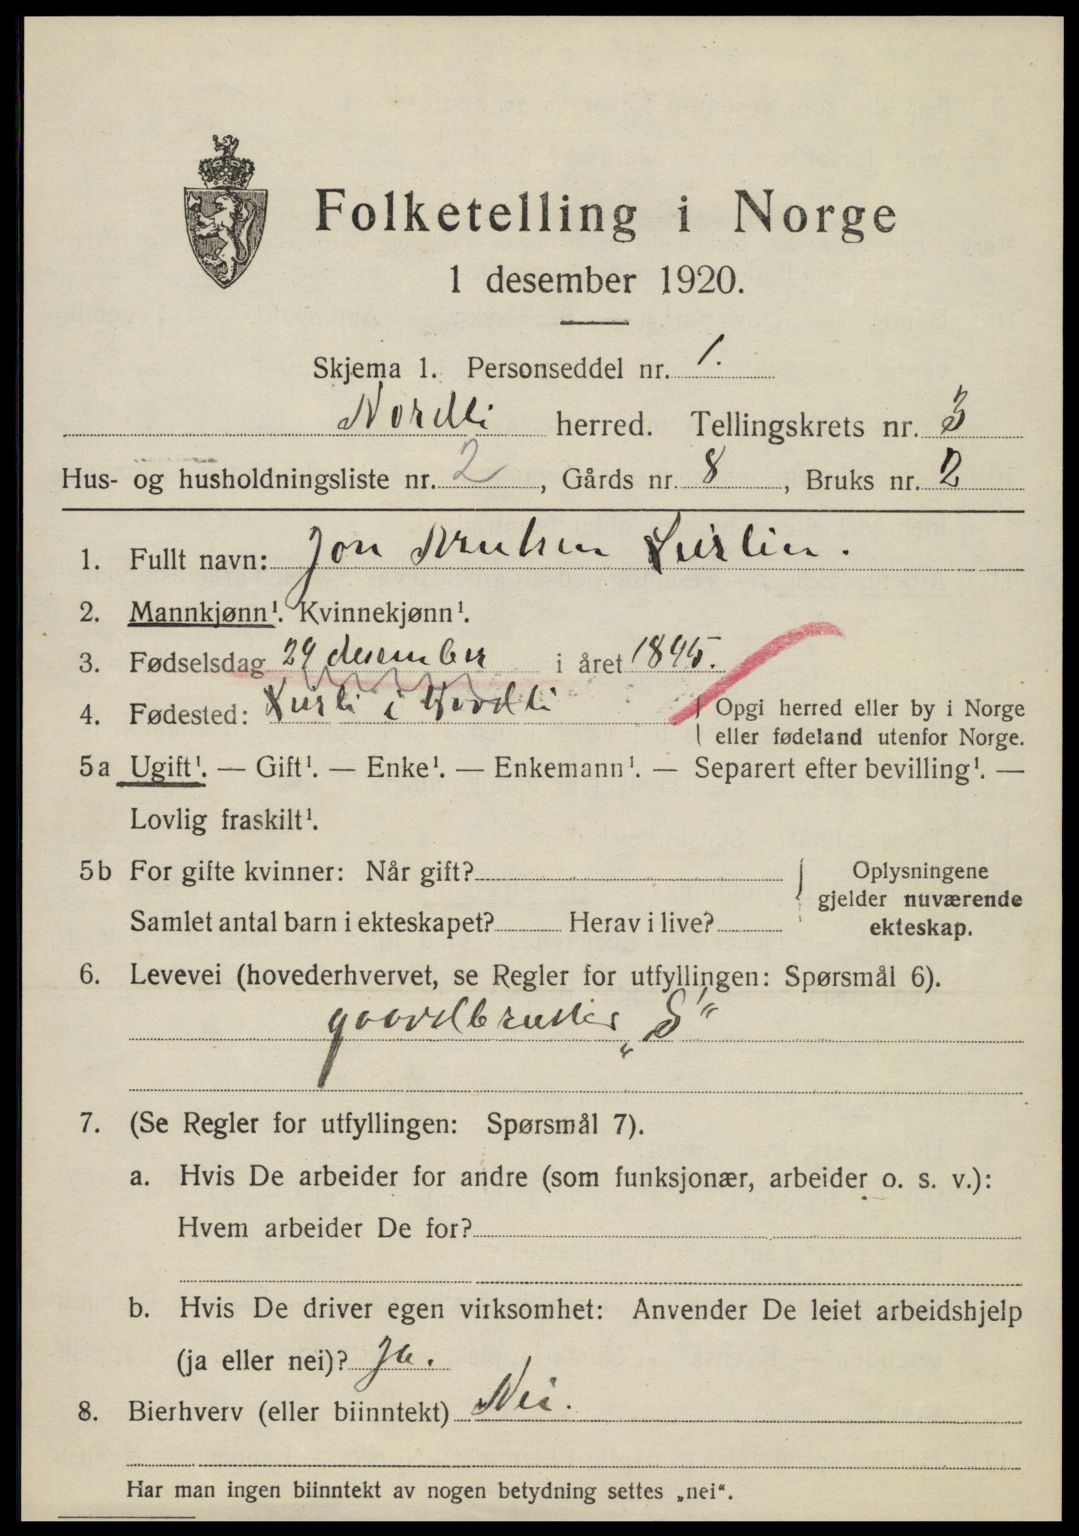 Folketelling i Norge
1 desember 1920.
Skjema 1. Personseddel nr. 1.
Nordli herred. Tellingskrets nr. 3
Hus- og husholdningsliste nr. 2, Gårds nr. 8, Bruks nr. 2
1. Fullt navn: Jon
2. Mannkjønn¹. Kvinnekjønn¹.
3. Fødselsdag 29 desember i året 1895.
4. Fødested: i Nordli { Opgi herred eller by i Norge
eller fødeland utenfor Norge.
5a Ugift¹. — Gift¹. — Enke¹. — Enkemann¹. — Separert efter bevilling¹. —
Lovlig fraskilt¹.
5b For gifte kvinner: Når gift? { Oplysningene
gjelder nuværende
Samlet antal barn i ekteskapet? Herav i live? ekteskap.
6. Levevei (hovederhvervet, se Regler for utfyllingen: Spørsmål 6).
gaardbruker „S“
7. (Se Regler for utfyllingen: Spørsmål 7).
a. Hvis De arbeider for andre (som funksjonær, arbeider o. s. v.):
Hvem arbeider De for?
b. Hvis De driver egen virksomhet: Anvender De leiet arbeidshjelp
(ja eller nei)? Ja.
8. Bierhverv (eller biinntekt) Nei.
Har man ingen biinntekt av nogen betydning settes „nei“.